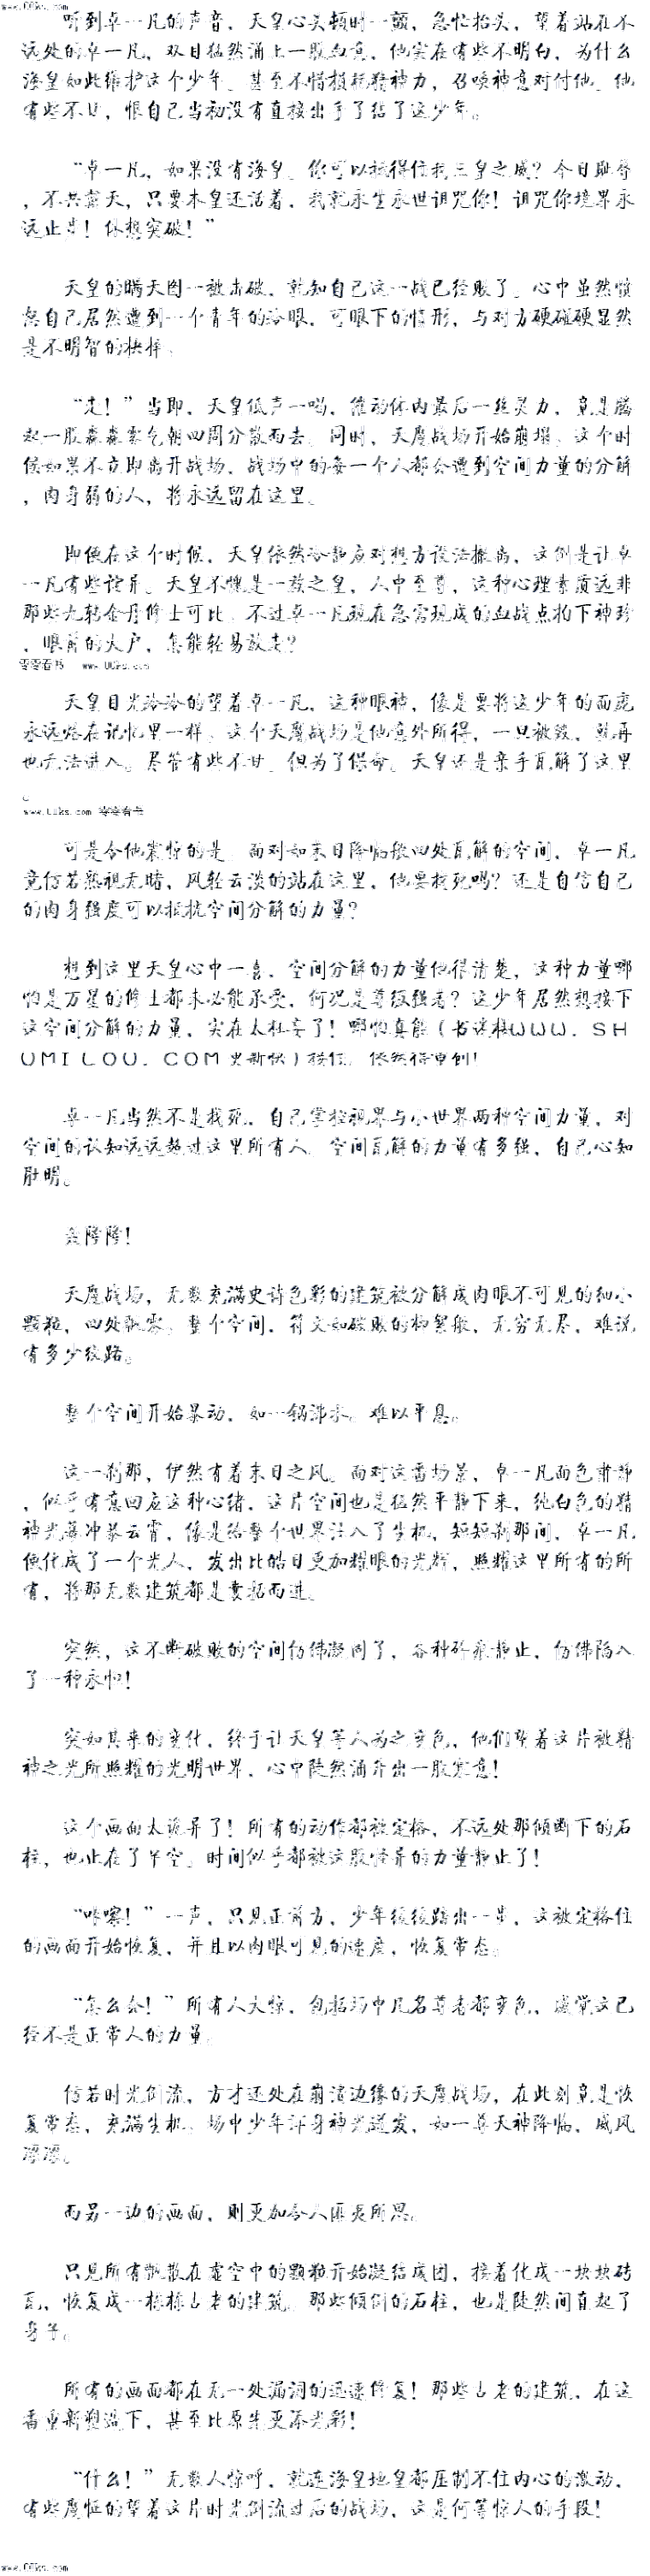 www.00ks.com
听到卓一凡的声音，天皇心头顿时一颤，急忙抬头，望着站在不
远处的卓一凡，双目猛然涌上一股血意，他实在有些不明白，为什么
海皇如此维护这个少年，甚至不惜损耗精神力，召唤神意对付他，他
有些不甘，恨自己当初没有直接出手了结了这少年。
“卓一凡，如果没有海皇，你可以抵得住我三皇之威？今日耻辱
，不共戴天，只要本皇还活着，我就永生永世诅咒你！诅咒你境界永
远止步！休想突破！”
天皇的瞒天图一被击破，就知自己这一战已经败了，心中虽然愤
怒自己居然遭到一个青年的冷眼，可眼下的情形，与对方硬碰硬显然
是不明智的抉择。
“走！”当即，天皇低声一喝，催动体内最后一丝灵力，竟是腾
起一股森森雾气朝四周分散而去，同时，天魔战场开始崩塌，这个时
候如果不立即离开战场，战场中的每一个人都会遭到空间力量的分解
，肉身弱的人，将永远留在这里。
即便在这个时候，天皇依然冷静应对想方设法撤离，这倒是让卓
一凡有些诧异。天皇不愧是一族之皇，人中至尊，这种心理素质远非
那些九转金丹修士可比，不过卓一凡现在急需现成的血战点拍下神珍
，眼前的大户，怎能轻易放走？
零零看书 www.00ks.com
天皇目光冷冷的望着卓一凡，这种眼神，像是要将这少年的面庞
永远烙在记忆里一样，这个天魔战场是他意外所得，一旦被毁，就再
也无法进入。尽管有些不甘，但为了保命，天皇还是亲手瓦解了这里
。
www.00ks.com 零零看书
可是令他震惊的是，面对如末日降临般四处瓦解的空间，卓一凡
竟仿若熟视无睹，风轻云淡的站在这里，他要找死吗？还是自信自己
的肉身强度可以抵抗空间分解的力量？
想到这里天皇心中一喜，空间分解的力量他很清楚，这种力量哪
怕是万星的修士都未必能承受，何况是尊级强者？这少年居然想接下
这空间分解的力量，实在太狂妄了！哪怕真能（书迷楼ＷＷＷ．ＳＨ
ＵＭＩＬＯＵ．ＣＯＭ更新快）接住，依然得重创！
卓一凡当然不是找死，自己掌控视界与小世界两种空间力量，对
空间的认知远远超过这里所有人，空间瓦解的力量有多强，自己心知
肚明。
轰隆隆！
天魔战场，无数充满史诗色彩的建筑被分解成肉眼不可见的细小
颗粒，四处飘零，整个空间，符文如破败的柳絮般，无穷无尽，难说
有多少纹路。
整个空间开始暴动，如一锅沸水。难以平息。
这一刹那，俨然有着末日之风。面对这番场景，卓一凡面色肃静
，似乎有意回应这种心绪，这片空间也是猛然平静下来，纯白色的精
神光幕冲暴云霄，像是给整个世界注入了生机，短短刹那间，卓一凡
便化成了一个光人，发出比皓日更加耀眼的光辉，照耀这里所有的所
有，将那无数建筑都是囊括而进。
突然，这不断破败的空间仿佛凝固了，各种碎痕静止，仿佛陷入
了一种永恒！
突如其来的变化，终于让天皇等人为之变色，他们望着这片被精
神之光所照耀的光明世界，心中陡然涌升出一股寒意！
这个画面太诡异了！所有的动作都被定格，不远处那倾断下的石
柱，也止在了半空，时间似乎都被这股怪异的力量静止了！
“咔嚓！”一声，只见正前方，少年缓缓踏出一步，这被定格住
的画面开始恢复，并且以肉眼可见的速度，恢复常态。
“怎么会！”所有人大惊，包括场中几名尊者都变色，感觉这已
经不是正常人的力量。
仿若时光倒流，方才还处在崩溃边缘的天魔战场，在此刻竟是恢
复常态，充满生机，场中少年浑身神光迸发，如一尊天神降临，威风
凛凛。
而另一边的画面，则更加令人匪夷所思。
只见所有飘散在虚空中的颗粒开始凝结成团，接着化成一块块砖
瓦，恢复成一栋栋古老的建筑。那些倾倒的石柱，也是陡然间直起了
身子。
所有的画面都在无一处漏洞的迅速修复！那些古老的建筑，在这
番重新塑造下，甚至比原先更添光彩！
“什么！”无数人惊呼，就连海皇地皇都压制不住内心的激动，
有些魔怔的望着这片时光倒流过后的战场，这是何等惊人的手段！
www.00ks.com